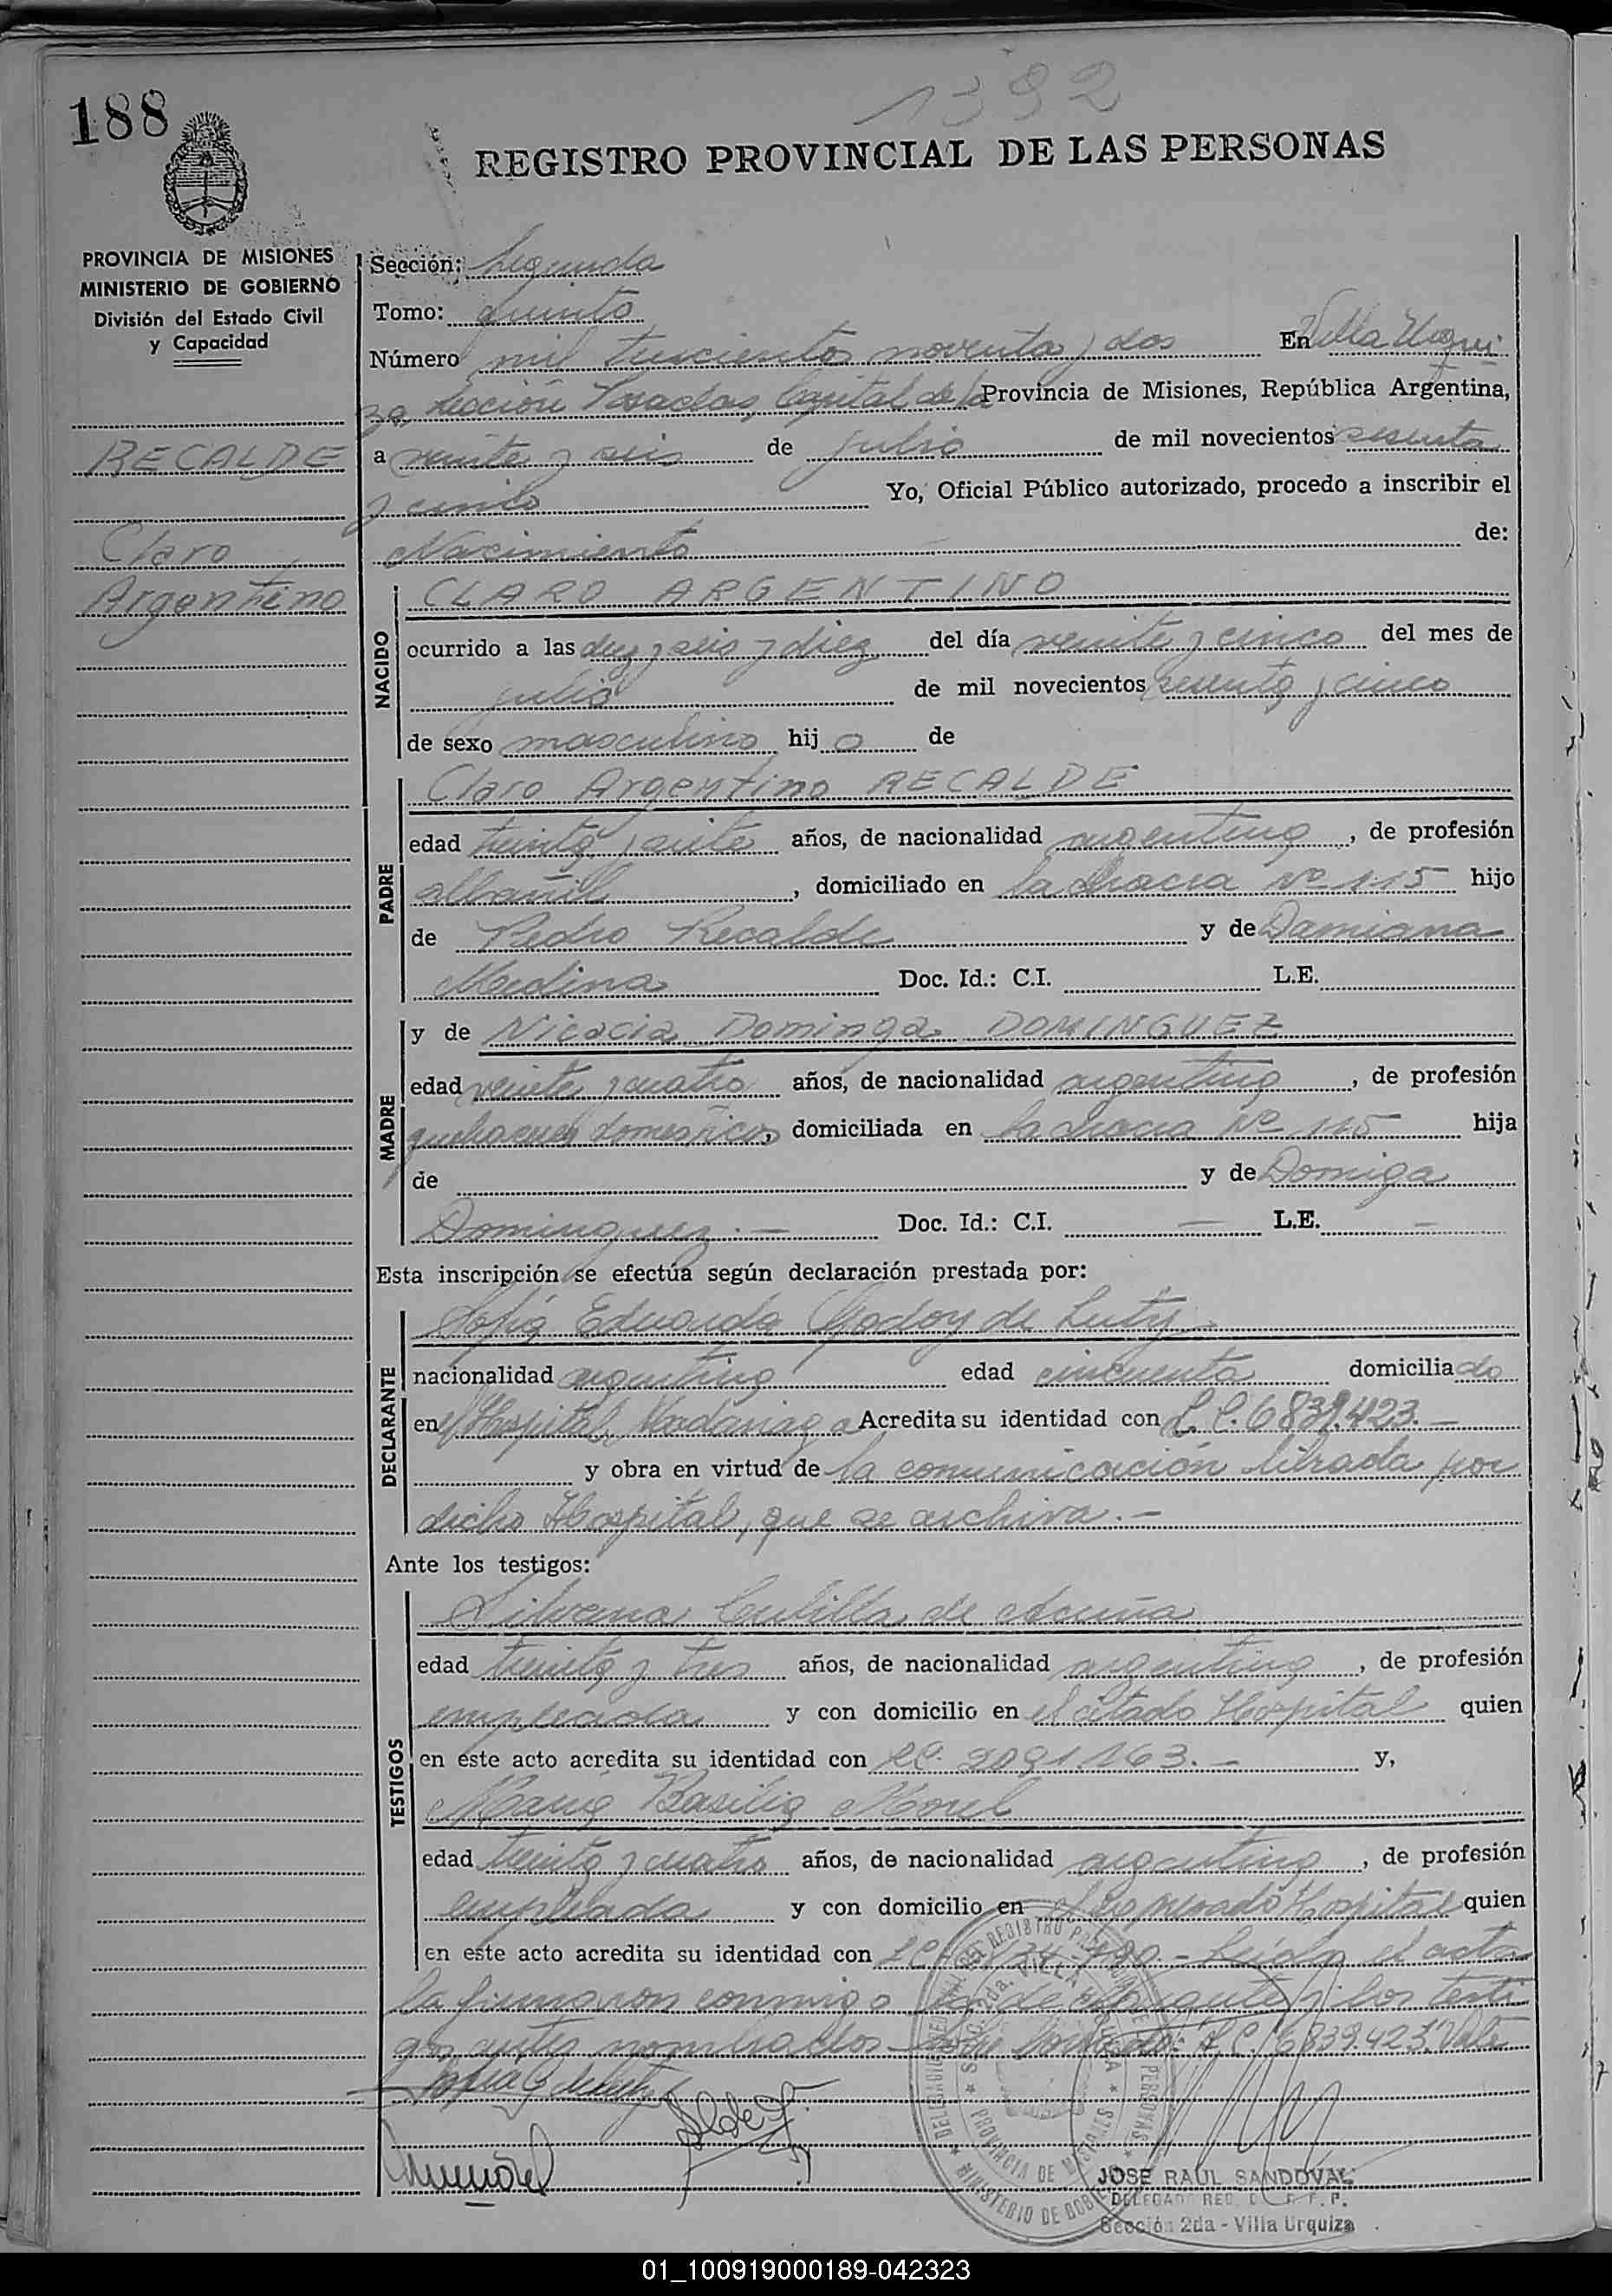 1392
188
REGISTRO PROVINCIAL DE LAS PERSONAS
PROVINCIA DE MISIONES
MINISTERIO DE GOBIERNO
División del Estado Civil
y Capacidad
RECALDE
Claro
Argentino
Sección: Segunda
Tomo: quinto
Número mil trescientos noventa y dos En Villa Urqui
za, Sección Posadas, Capital de la Provincia de Misiones, República Argentina,
a veinte y seis de julio de mil novecientos sesenta
y cinco Yo, Oficial Público autorizado, procedo a inscribir el
Nacimiento de:
NACIDO
CLARO ARGENTINO
ocurrido a las diez y seis y diez del día veinte y cinco del mes de
julio de mil novecientos sesenta y cinco
de sexo masculino hijo de
PADRE
Claro Argentino RECALDE
edad treinta y siete años, de nacionalidad argentina, de profesión
albañil, domiciliado en la chacra Nº 115 hijo
de Pedro Recalde y de Damiana
Medina Doc. Id.: C.I. L.E.
MADRE
y de Nicacia Dominga DOMINGUEZ
edad veinte y cuatro años, de nacionalidad argentina, de profesión
quehaceres domésticos, domiciliada en la chacra Nº 115 hija
de y de Domiga
Dominguez.- Doc. Id.: C.I. — L.E. —
Esta inscripción se efectúa según declaración prestada por:
DECLARANTE
Sofia Eduarda Godoy de Luty
nacionalidad argentina edad cincuenta domiciliado
en el Hospital Madariaga Acredita su identidad con L.C. 6839.423.-
y obra en virtud de la comunicación librada por
dicho Hospital, que se archiva.-
Ante los testigos:
TESTIGOS
Silvana Cubilla de Acuña
edad treinta y tres años, de nacionalidad argentina, de profesión
empleada y con domicilio en el citado Hospital quien
en este acto acredita su identidad con LC. 2091163.- y,
Maria Basilia Morel
edad treinta y cuatro años, de nacionalidad argentina, de profesión
empleada y con domicilio en el expresado Hospital quien
en este acto acredita su identidad con LC. - Leida el acta
la firmaron conmigo la declarante y los testi
gos antes nombrados - L.C. 6839.423. Vale
Sofia G de Luty
MINISTERIO DE GOBIERNO
PROVINCIA DE MISIONES
JOSE RAUL SANDOVAL
DELEGADO REG.
Sección 2da - Villa Urquiza
01_100919000189-042323